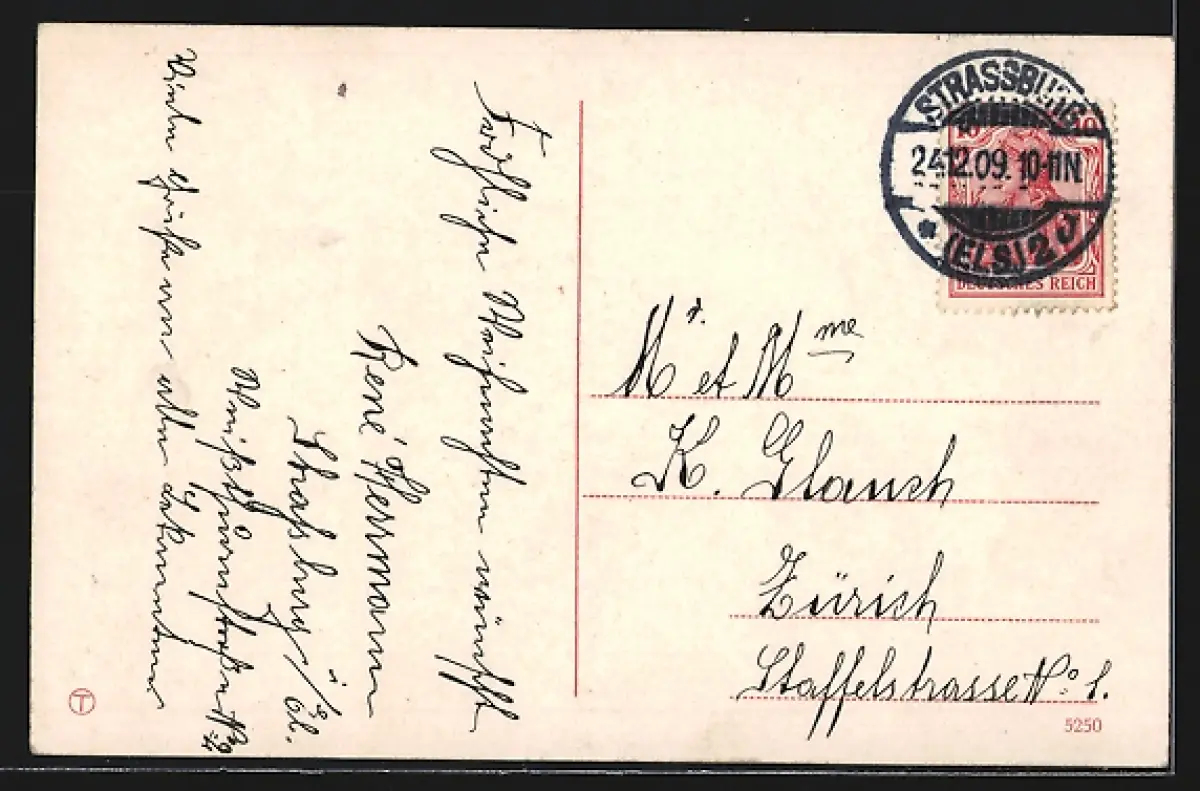 STRASSBURG
24.12.09. 10-11N.
* (ELS.) 2 J
10 10
DEUTSCHES REICH
Mr. et Mme
K. Glauch
Zürich
Staffelstrasse No. 1.
5250
Fröhliche Weihnachten wünscht
René Herrmann
Straßburg i/El.
Viele Grüße an alle Bekannten
T